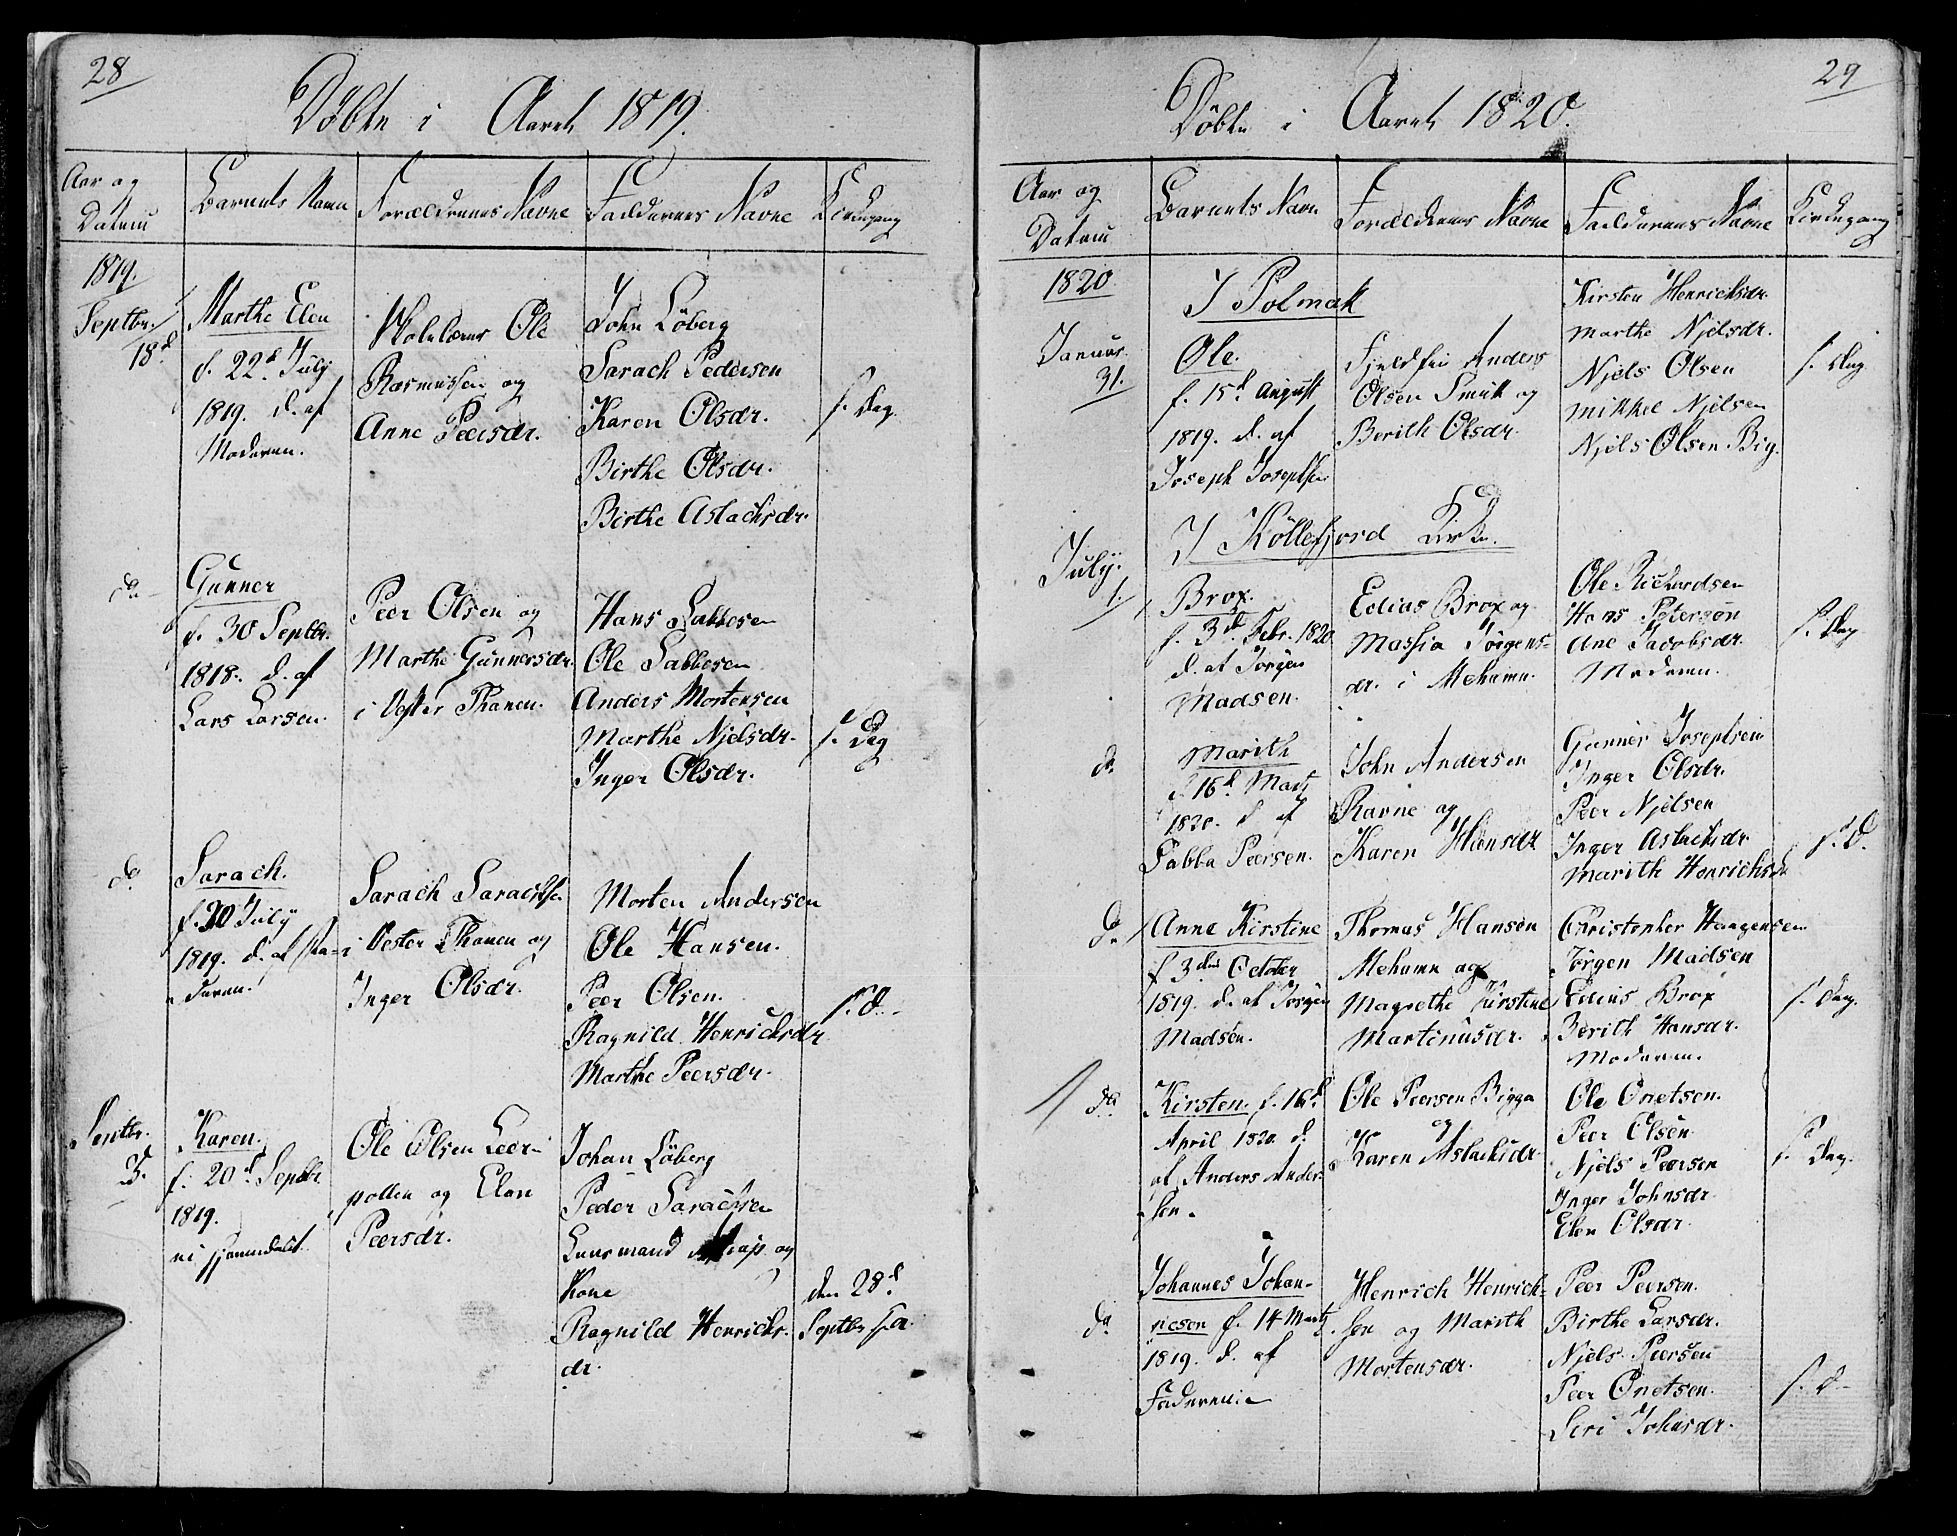 28
Döbte i Aaret 1819.
Aar og Datum
Barnets Navn
Forældrenes Navne
Faddernes Navne
Kirkegang
1819.
Septbr. 18d
Marthe Elen
f. 22d July
1819. d. af
Moderen.
Skolelærer Ole
Rasmussen og
Anne Peersdr.
John Löberg
Sarach Pedersen
Karen Olsdr.
Birthe Olsdr.
Birthe Aslachsdr.
s. Dag.
do
Gunner
f. 30 Septbr.
1818. d. af
Lars Larsen.
Peer Olsen og
Marthe Gunnersdr.
i Vester Thanen.
Hans Sabbesen
Ole Sabbesen
Anders Mortensen
Marthe Njelsdr.
Inger Olsdr.
s. Dag
do
Sarach.
f. 20 July
1819. d. af Fa-
deren.
Sarach Sarachsen
i Vester Thanen og
Inger Olsdr.
Morten Andersen
Ole Hansen.
Peer Olsen.
Ragnild Henrichsdr
Marthe Peersdr.
s. D.
Septbr.
Karen.
f. 20d Septbr
1819.
ei hjemmedöbt.
Ole Olsen Leer-
pollen og Elen
Peersdr.
Johan Löberg
Peder Sarachsen
Lensmand og
Kone
Ragnild Henrichs.
dr.
den 28d
Septbr
29
Döbte i Aaret 1820.
Aar og
Datum
Barnets Navn
Forældrenes Navne
Faddernes Navne
Kirkegang
1820
I Polmak
Januar.
31.
Ole.
f. 15d August
1819. d. af
Joseph Josephsen
Fjeldfin Anders
Olsen Smuk og
Berith Olsdr.
Kirsten Henrichsdr.
Marthe Njelsdr.
Njels Olsen
Mikkel Njelsen
Njels Olsen Big.
s. Dag
I Köllefjord Kirke.
July.
1.
Brox.
f. 3d Febr. 1820
d. af Jörgen
Madsen.
Edias Brox og
Massia Jörgens-
dr. i Mehamn.
Ole Richardsen
Hans Petersøn
Ane Jacobsdr.
Moderen.
s. Dag
do
Marith
f. 16d Marts
1820. d. af
Sabba Peersen.
John Andersen
Ravne og
Karen
Gunner Josephsen
Inger Olsdr.
Peer Njelsen
Inger Aslachsdr.
Marith Henrichsdr
s. D.
do
Anne Kirstine
f. 3den October
1819. d. af Jörgen
Madsen.
Thomas Hansen
Mehamn og
Magrethe Kirstine
Martinusdr.
Christopher Haagensen
Jörgen Madsen
Edius Brox
Berith Hansdr.
Moderen.
s. Dag.
do
Kirsten. f. 16d
April 1820. d.
af Anders Ander-
sen.
Ole Peersen Bigga
og
Karen Aslachsdr.
Ole Onetsen.
Peer Olsen.
Njels Peersen
Inger Johnsdr.
Elen Olsdr.
s. Dag.
do
Johannes Johan-
nesen f. 14 Marts
1819. d. af
Faderen.
Henrich Henrich-
sen og Marith
Mortensdr.
Peer Peersen.
Birthe Larsdr.
Njels Peersen
Peer Onetsen.
Siri Johnsdr.
s. D